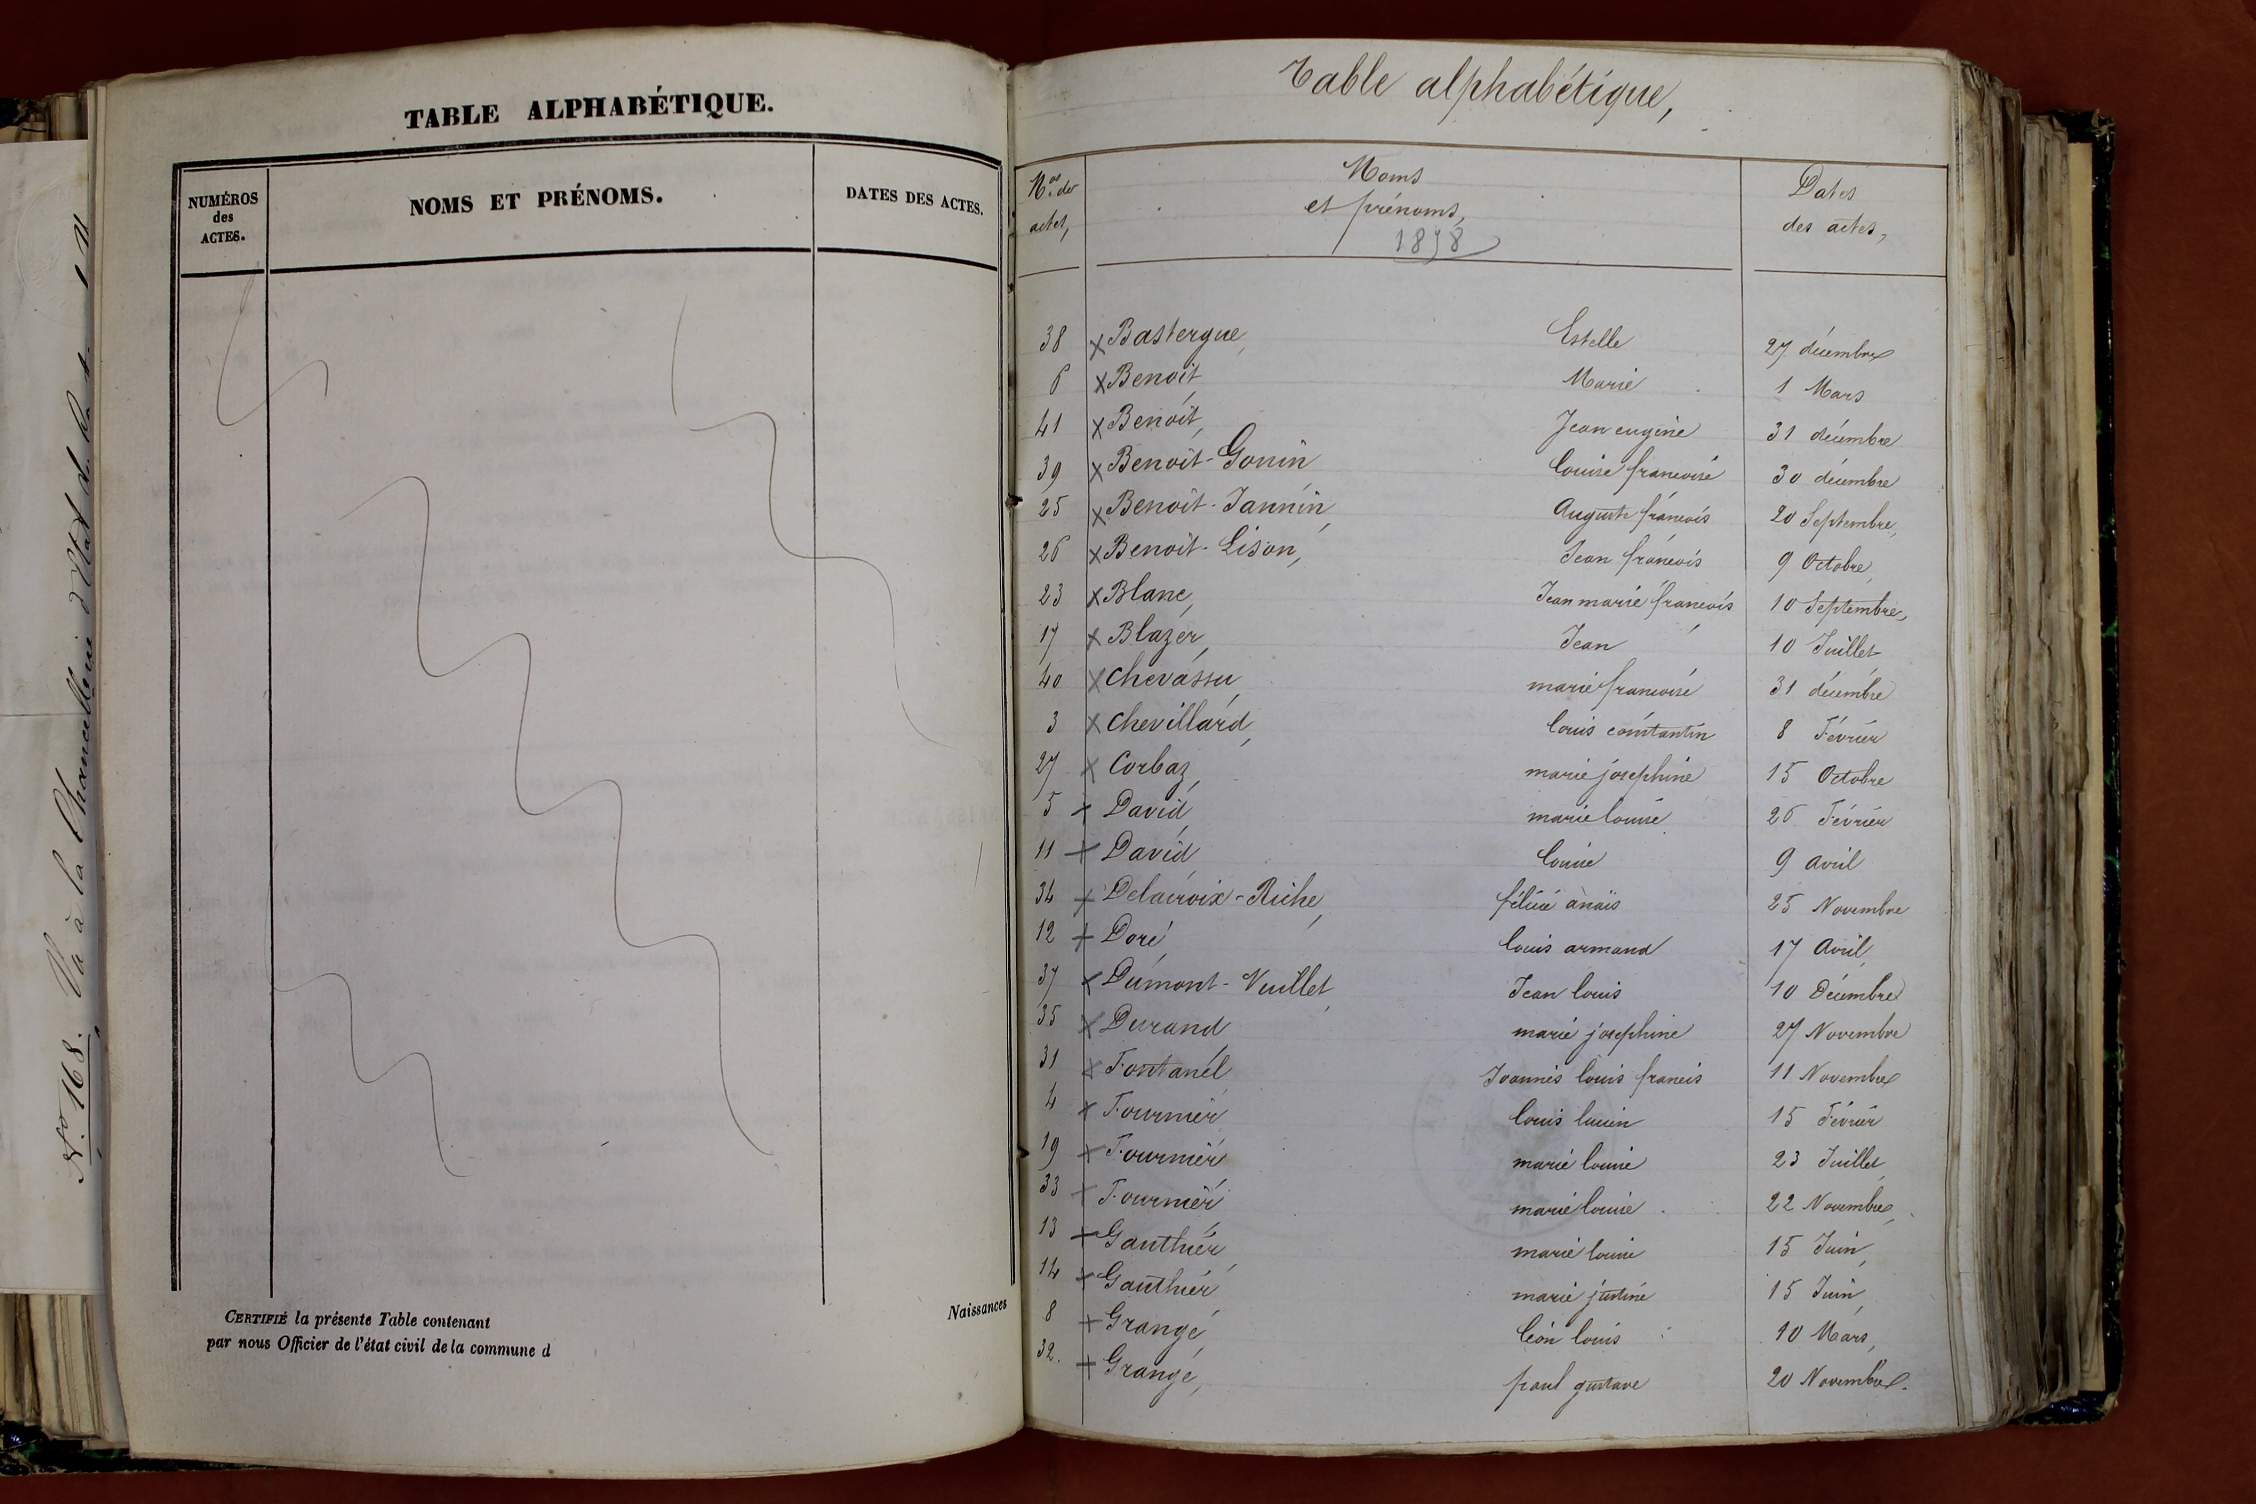 TABLE ALPHABÉTIQUE.
NUMÉROS des ACTES.
NOMS ET PRÉNOMS.
DATES DES ACTES.
CERTIFIÉ la présente Table contenant
Naissances
par nous Officier de l'état civil de la commune d
No 168. Vu à la Chancellerie d'Etat de
Table alphabétique,
Nos des actes,
Noms et prénoms,
1878
Dates des actes,
38 x Bastergue, Estelle 27 décembre
6 x Benoit, Marie 1 Mars
41 x Benoit, Jean eugène 31 décembre
39 x Benoit-Gonin Louise francoise 30 décembre
25 x Benoit-Jannin, Auguste francois 20 Septembre,
26 x Benoit-Lison, Jean francois 9 Octobre,
23 x Blanc, Jean marie francois 10 Septembre,
17 x Blazer, Jean 10 Juillet
40 x Chevassu, marie francoise 31 décembre
3 x Chevillard, Louis constantin 8 Février
27 x Corbaz, marie josephine 15 Octobre
5 x David, marie louise 26 Février
11 x David, Louise 9 avril
34 x Delacroix-Riche, félicie anaïs 25 Novembre
12 x Doré, Louis armand 17 Avril,
37 x Dumont-Vuillet, Jean louis 10 Décembre
35 x Durand, marie josephine 27 Novembre
31 x Fontanel, Joannès louis francis 11 Novembre
4 x Fournier, Louis lucien 15 Février
19 x Fournier, marie louise 23 Juillet,
33 x Fournier, marie louise 22 Novembre,
13 x Gauthier, marie louise 15 Juin,
14 x Gauthier, marie justine 15 Juin,
8 x Grangé, Léon louis 10 Mars,
32. x Grangé, paul gustave 20 Novembre.